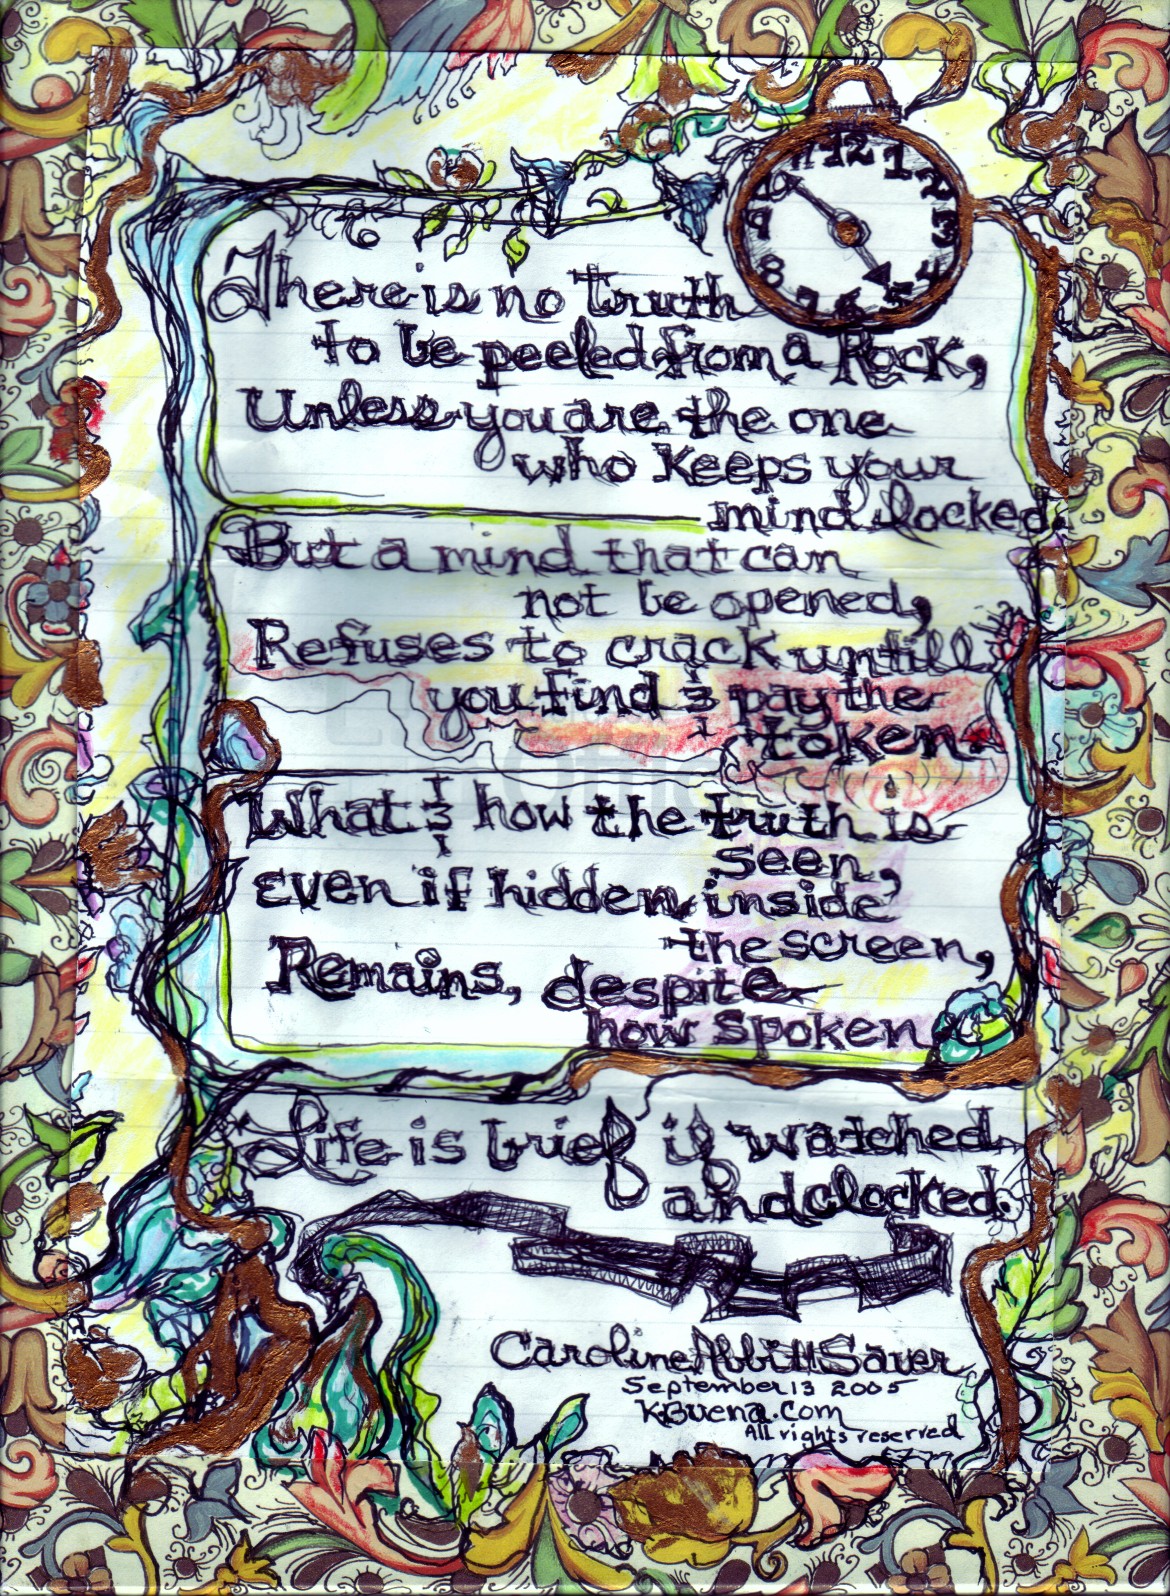 There is no truth
to be peeled from a Rock,
Unless you are the one
who keeps your
mind locked
But a mind that can
not be opened,
Refuses to crack untill
you find & pay the
token.
What & how the truth is
seen,
Even if hidden inside
the screen,
Remains, despite
how spoken
Life is brief if watched
and clocked.
12
1
2
3
4
5
6
7
8
9
10
11
Caroline Abbitt Sauer
September 13 2005
KBuena.com
All rights reserved